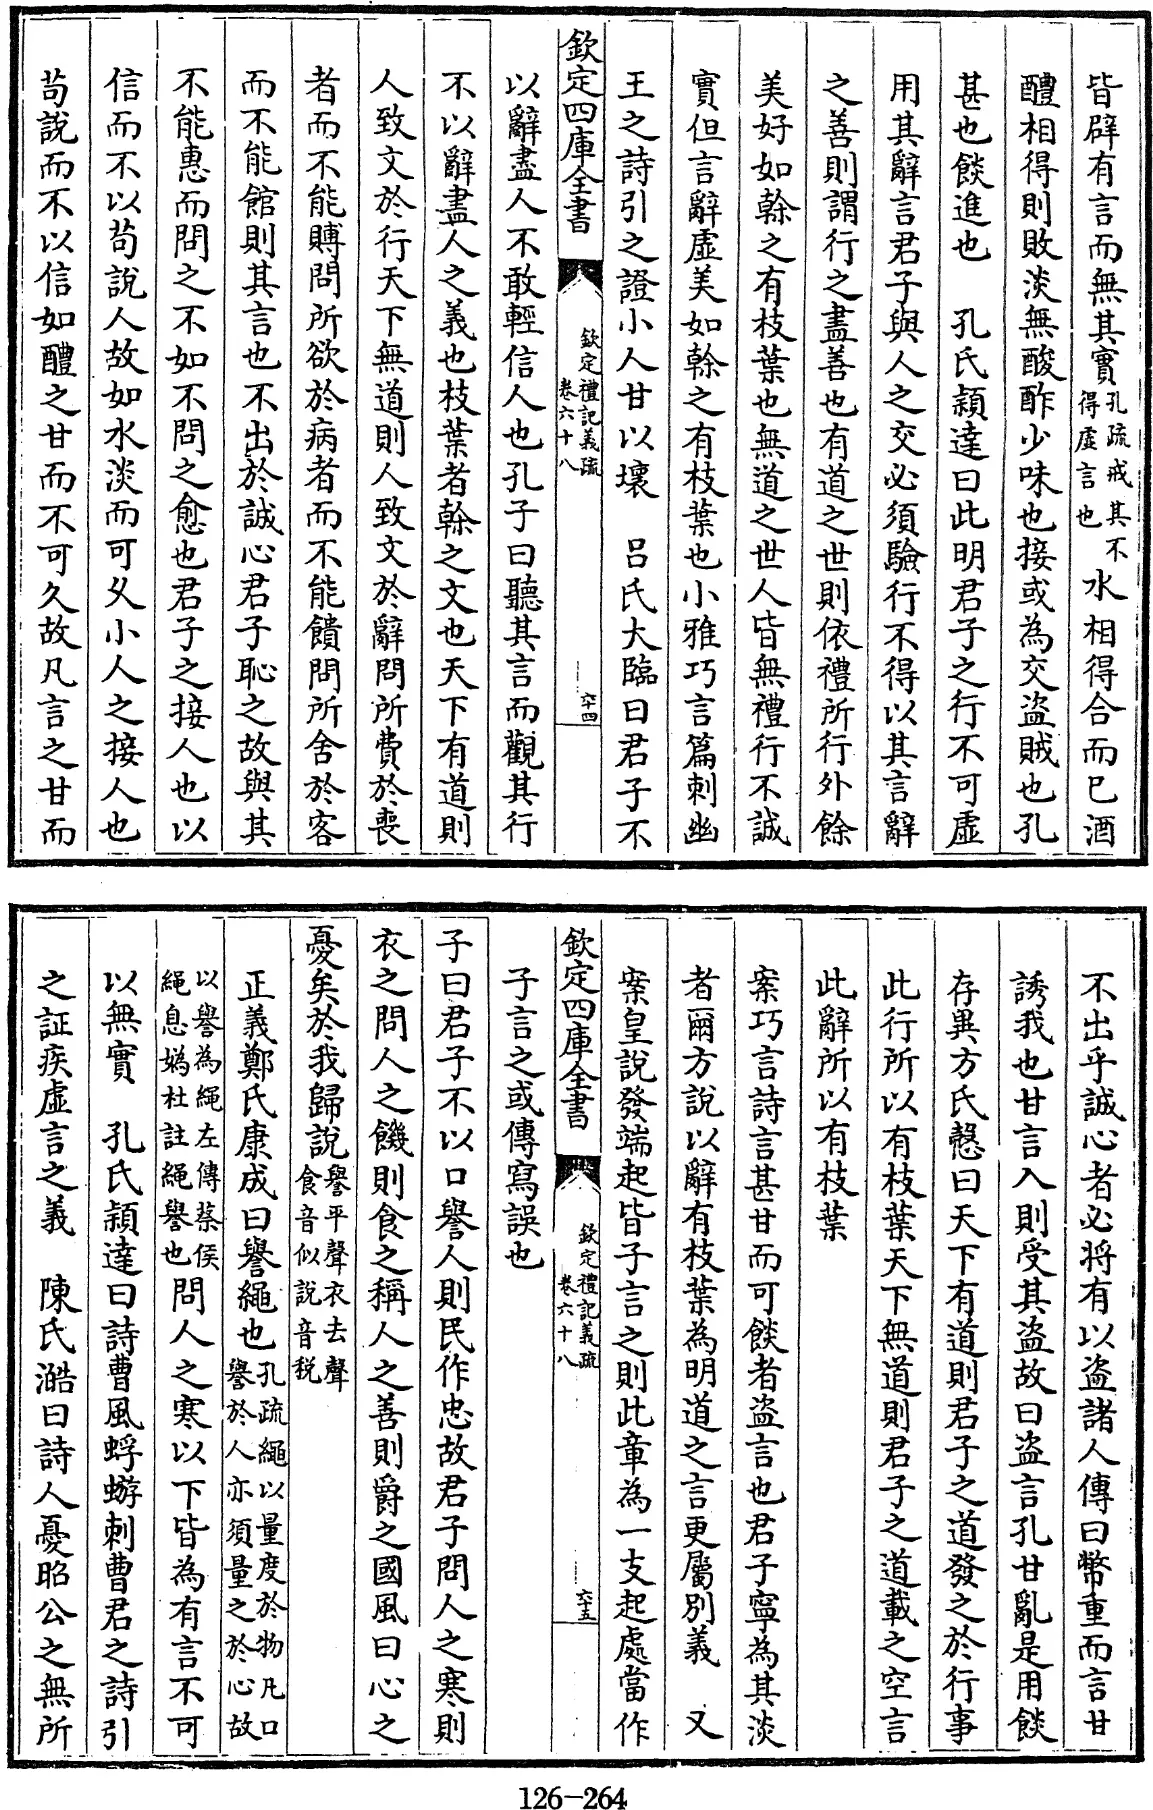 皆辟有言而無其實孔疏戒其不得虛言也水相得合而已酒
醴相得則敗淡無酸酢少味也接或為交盜賊也孔
甚也餤進也　孔氏頴達曰此明君子之行不可虛
用其辭言君子與人之交必須驗行不得以其言辭
之善則謂行之盡善也有道之世則依禮所行外餘
美好如榦之有枝葉也無道之世人皆無禮行不誠
實但言辭虛美如榦之有枝葉也小雅巧言篇刺幽
王之詩引之證小人甘以壞　呂氏大臨曰君子不
欽定四庫全書
欽定禮記義疏
卷六十八
六十四
以辭盡人不敢輕信人也孔子曰聽其言而觀其行
不以辭盡人之義也枝葉者榦之文也天下有道則
人致文於行天下無道則人致文於辭問所費於喪
者而不能賻問所欲於病者而不能饋問所舍於客
而不能館則其言也不出於誠心君子恥之故與其
不能惠而問之不如不問之愈也君子之接人也以
信而不以苟說人故如水淡而可久小人之接人也
苟說而不以信如醴之甘而不可久故凡言之甘而
不出乎誠心者必將有以盜諸人傳曰幣重而言甘
誘我也甘言入則受其盜故曰盜言孔甘亂是用餤
存異方氏慤曰天下有道則君子之道發之於行事
此行所以有枝葉天下無道則君子之道載之空言
此辭所以有枝葉
案巧言詩言甚甘而可餤者盜言也君子寧為其淡
者爾方說以辭有枝葉為明道之言更屬別義　又
案皇說發端起皆子言之則此章為一支起處當作
欽定四庫全書
欽定禮記義疏
卷六十八
六十五
子言之或傳寫誤也
子曰君子不以口譽人則民作忠故君子問人之寒則
衣之問人之饑則食之稱人之善則爵之國風曰心之
憂矣於我歸說譽平聲衣去聲食音似說音税
正義鄭氏康成曰譽繩也孔疏繩以量度於物凡口譽於人亦須量之於心故
以譽為繩左傳蔡侯繩息媯杜註繩譽也問人之寒以下皆為有言不可
以無實　孔氏頴達曰詩曹風蜉蝣刺曹君之詩引
之証疾虛言之義　陳氏澔曰詩人憂昭公之無所
126-264